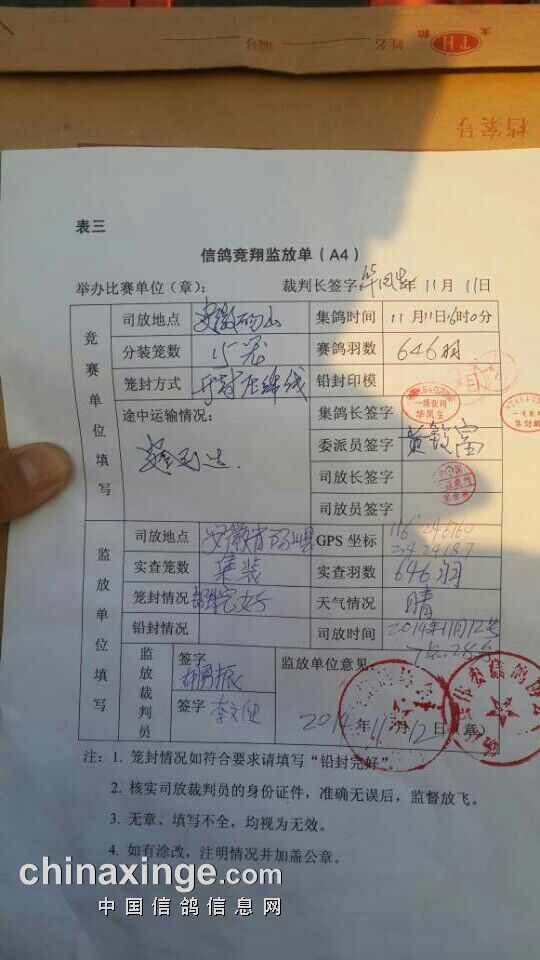 太和
TH
姓名
编号
档案号
表三
信鸽竞翔监放单（A4）
举办比赛单位（章）： 裁判长签字 年 11月 11日
竞赛单位填写
司放地点 安徽砀山 集鸽时间 11月11日16时0分
分装笼数 15笼 赛鸽羽数 646羽
笼封方式 铅封印模
途中运输情况： 集鸽长签字
委派员签字 黄钦富
司放长签字
司放员签字
监放单位填写
司放地点 安徽省砀山县 GPS 坐标
实查笼数 集装 实查羽数 646羽
笼封情况 完好 天气情况 晴
铅封情况 司放时间 2014年11月12号
监放裁判员
签字
监放单位意见：
签字
2014年11月12日（章）
注：1. 笼封情况如符合要求请填写“铅封完好”。
2. 核实司放裁判员的身份证件，准确无误后，监督放飞。
3. 无章、填写不全，均视为无效。
4. 如有涂改，注明情况并加盖公章。
chinaxinge.com
中国信鸽信息网